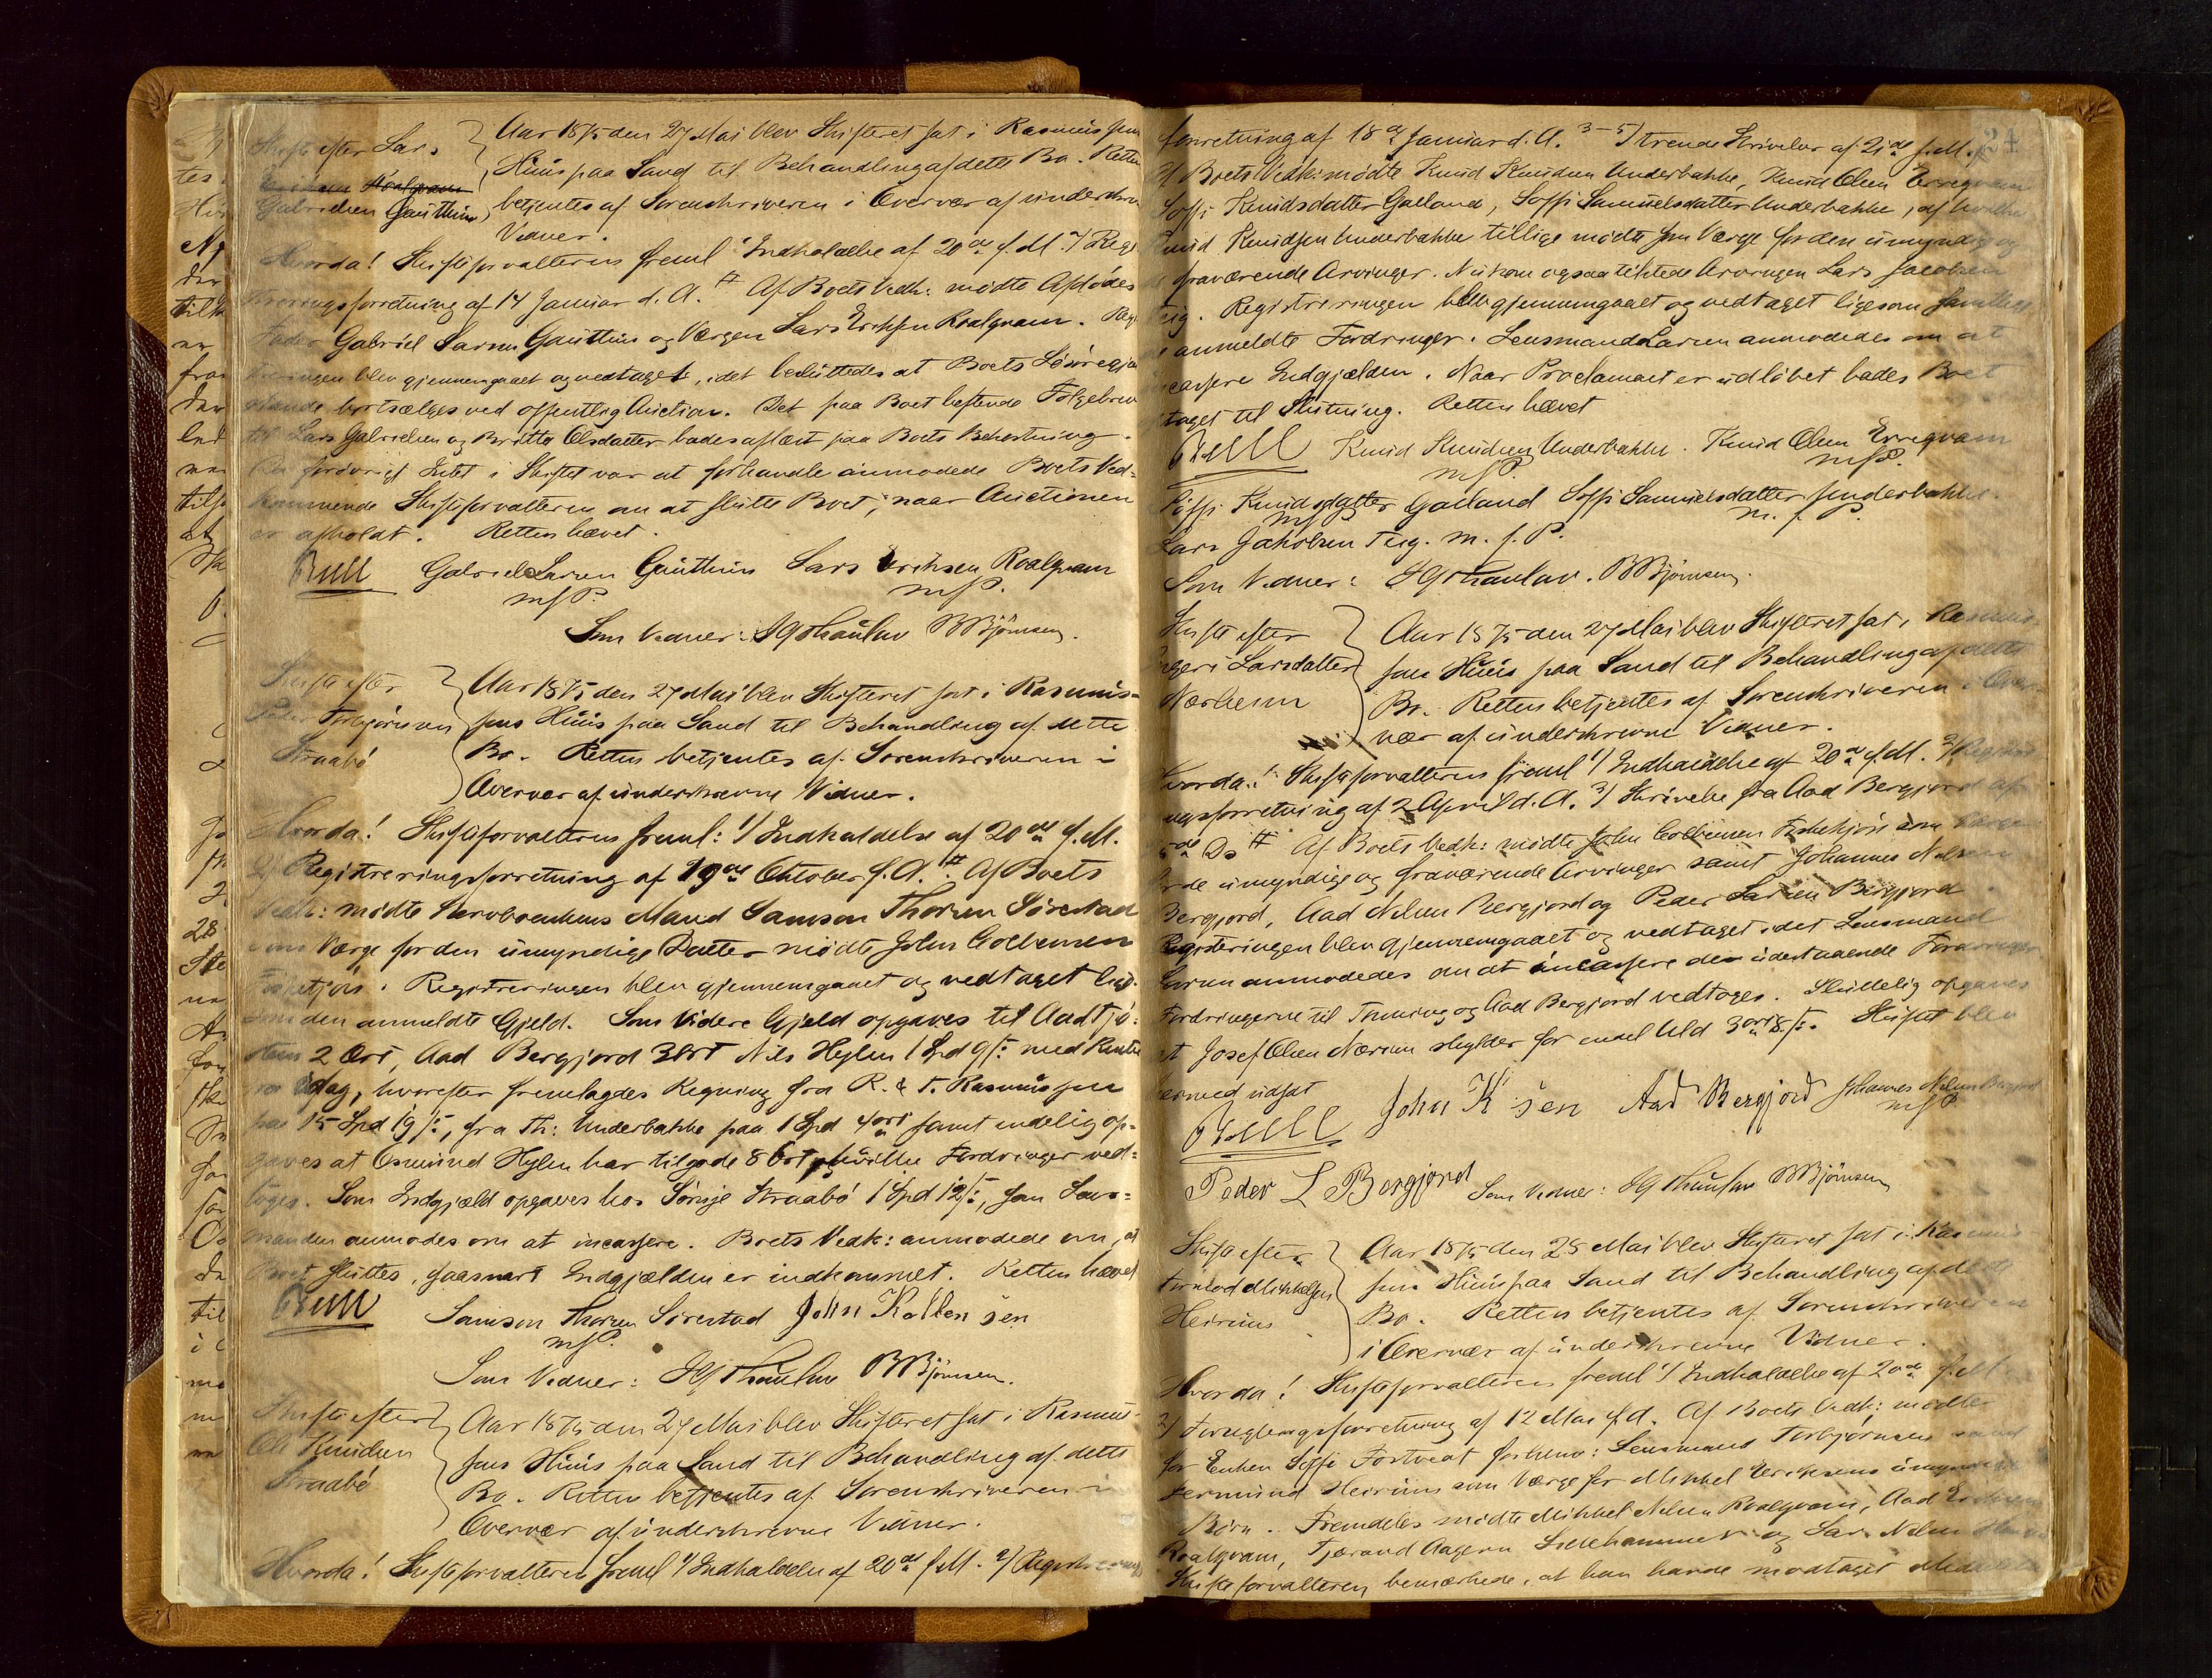 Skifte efter Lars
Roalqvam
Gabrielsen Gautthun
Aar 1875 den 27 Mai blev Skifteret sat i Rasmussens
Huus paa Sand til Behandling af dette Bo. Retten
betjentes af Sorenskriveren i Overvær af underskrevne
Vidner.
Hvorda! Skifteforvalteren freml 1/ Indkaldelse af 20de f. M. 2/ Regi
streringsforretning af 14 Januar d. A. # Af Boets Vedk: mødte Afdødes
Fader Gabriel Larsen Gautthun og Værgen Lars Erichsen Roalqvam. Regi
streringen blev gjennemgaaet og vedtaget, idet besluttedes at Boets Løsøregjen
stande bortsælges ved offentlig Auction. Det paa Boet heftende Følgebrev
til Lars Gabrielsen og Britte Olsdatter bades aflæst paa Boets Bekostning.
Da forøvrigt Intet i Skiftet var at forhandle anmodede Boets Ved-
kommende Skifteforvalteren om at slutte Boet, naar Auctionen
er afholdt. Retten hævet.
Bull Gabriel Larsen Gautthun Lars Erichsen Roalqvam
m f P. m f P.
Som Vidner: BBjørnsen.
Skifte efter
Peder Torbjørnsen
Straabø
Aar 1875 den 27 Mai blev Skifteret sat i Rasmus-
sens Huus paa Sand til Behandling af dette
Bo. Retten betjentes af Sorenskriveren i
Overvær af underskrevne Vidner.
Hvorda! Skifteforvalteren freml: 1/ Indkaldelse af 20de f. M.
2/ Registreringsforretning af 19de Oktober f. A. # Af Boets
Vedk: mødte Stervboenkens Mand Samson Thorsen Sørestad
som Værge for den umyndige Datter mødte John Colbensen
Fiskekjøn. Registreringen blev gjennemgaaet og vedtaget lige-
som den anmeldte Gjeld. Som videre Gjeld opgaves til Aad Tjø-
stheim 2 Ort, Aad Bergjord 3 Ort Nils Hylen 1 Spd 9 ß med Renter
til idag, hvorefter fremlagdes Regning fra R. & T. Rasmussen
paa 15 Spd 19 ß, fra Th: Underbakke paa 1 Spd 4 ort samt endelig op-
gaves at Osmund Hylen har tilgode 8 Ort hvilke Fordringer ved-
toges. Som Indgjæld opgaves hos Straabø 1 Spd 12 ß, som Lens-
manden anmodes om at incassere. Boets Vedk: anmodede om, at
Boet sluttes, saasnart Indgjælden er indkommet. Retten hævet
Bull Samson Thorsen Sørestad John Kolbensen
m f P.
Som Vidner: BBjørnsen.
Skifte efter
Ole Knudsen
Straabø
Aar 1875 den 27 Mai blev Skifteret sat i Rasmus-
sens Huus paa Sand til Behandling af dette
Bo. Retten betjentes af Sorenskriveren i
Overvær af underskrevne Vidner.
Hvorda! Skifteforvalteren freml 1/ Indkaldelse af 20de f. M. 2/ Registrerings
24
forretning af 18de Januar d. A. 3-5/ trende Skrivelser af 21de f. M.
Af Boets Vedk: mødte Knud Knudsen Underbakke, Knud Olsen Erreqvam
Soffi Knudsdatter Galland, Soffi Samuelsdatter Underbakke, af hvilke
Knud Knudsen Underbakke tillige mødte som Værge for den umyndige og
de fraværende Arvinger. Nu kom ogsaa tilstede Arvingen Lars Jacobsen
Teig. Registreringen blev gjennemgaaet og vedtaget ligesom samtlige
anmeldte Fordringer. Lensmand Larsen anmodedes om at
incassere Indgjælden. Naar Proclamaet er udløbet bades Boet
taget til Slutning. Retten hævet
Bull Knud Knudsen Underbakke. Knud Olsen Erreqvam
m f P. m f P.
Soffi Knudsdatter Galland Soffi Samuelsdatter Underbakke.
m f P m. f. P.
Lars Jakobsen Teig. m. f. P.
Som Vidner: BBjørnsen.
Skifte efter
Ingeri Larsdatter
Nærheim
Aar 1875 den 27 Mai blev Skifteret sat i Rasmus-
sens Huus paa Sand til Behandling af dette
Bo. Retten betjentes af Sorenskriveren i Over-
vær af underskrevne Vidner.
Hvorda! Skifteforvalteren freml 1/ Indkaldelse af 20de f. M. 2/ Registre
ringsforretning af 2 April d. A. 3/ Skrivelse fra Aad Bergjord af
Ds # Af Boets Vedk: mødte John Colbensen Fiskekjøn som Værge
for de umyndige og fraværende Arvinger samt Johannes Nelsen
Bergjord, Aad Nelsen Bergjord og Peder Larsen Bergjord.
Registeringen blev gjennemgaaet og vedtaget idet Lensmand
Larsen anmodedes om at incassere de udestaaende Fordringer
Fordringerne til Tonning og Aad Bergjord vedtoges. Sluttelig opgaves
at Josef Olsen Nærum skylder for endel Uld 3 ort 8 ß. Skiftet blev
hermed udsat
Bull John K sen Aad Bergjord Johannes Nelsen Bergjord
m f P.
Peder L Bergjord Som Vidner: BBjørnsen
Skifte efter
Tormod Mikkelsen
Heirum
Aar 1875 den 28 Mai blev Skifteret sat i Rasmus
sens Huus paa Sand til Behandling af dette
Bo. Retten betjentes af Sorenskriveren
i Overvær af underskrevne Vidner.
Hvorda! Skifteforvalteren freml 1/ Indkaldelse af 20de f. M
2/ Forseglingsforretning af 12 Mai f. A. Af Boets Vedk: mødte
for Enken Siffi Lensmand Torbjørnsen samt
Heirum som Værge for Mikkel Eriksens umyndige
Børn. Fremdeles mødte Mikkel Nelsen Roalqvam, Aad Erichsen
Roalqvam, Tjerand Aagesen Lillehammer og Lars Nelsen
Skifteforvalteren bemærkede, at han havde modtaget